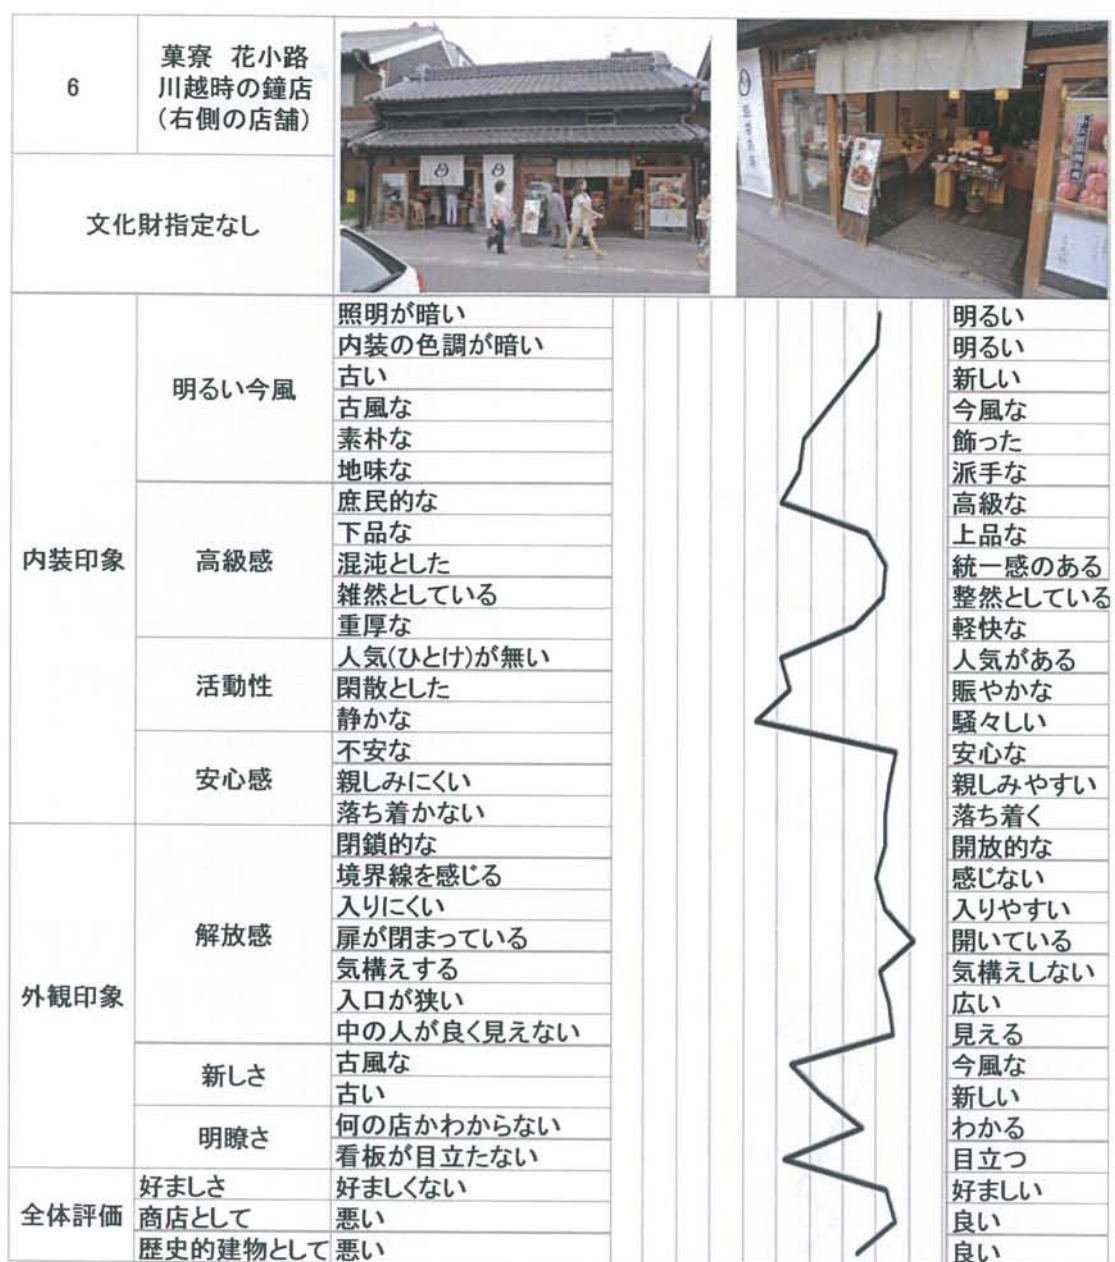 6
菓寮 花小路
川越時の鐘店
(右側の店舗)
文化財指定なし
内装印象
明るい今風
照明が暗い 明るい
内装の色調が暗い 明るい
古い 新しい
古風な 今風な
素朴な 飾った
地味な 派手な
高級感
庶民的な 高級な
下品な 上品な
混沌とした 統一感のある
雑然としている 整然としている
重厚な 軽快な
活動性
人気(ひとけ)が無い 人気がある
閑散とした 賑やかな
静かな 騒々しい
安心感
不安な 安心な
親しみにくい 親しみやすい
落ち着かない 落ち着く
外観印象
解放感
閉鎖的な 開放的な
境界線を感じる 感じない
入りにくい 入りやすい
扉が閉まっている 開いている
気構えする 気構えしない
入口が狭い 広い
中の人が良く見えない 見える
新しさ
古風な 今風な
古い 新しい
明瞭さ
何の店かわからない わかる
看板が目立たない 目立つ
全体評価
好ましさ 好ましくない 好ましい
商店として 悪い 良い
歴史的建物として 悪い 良い